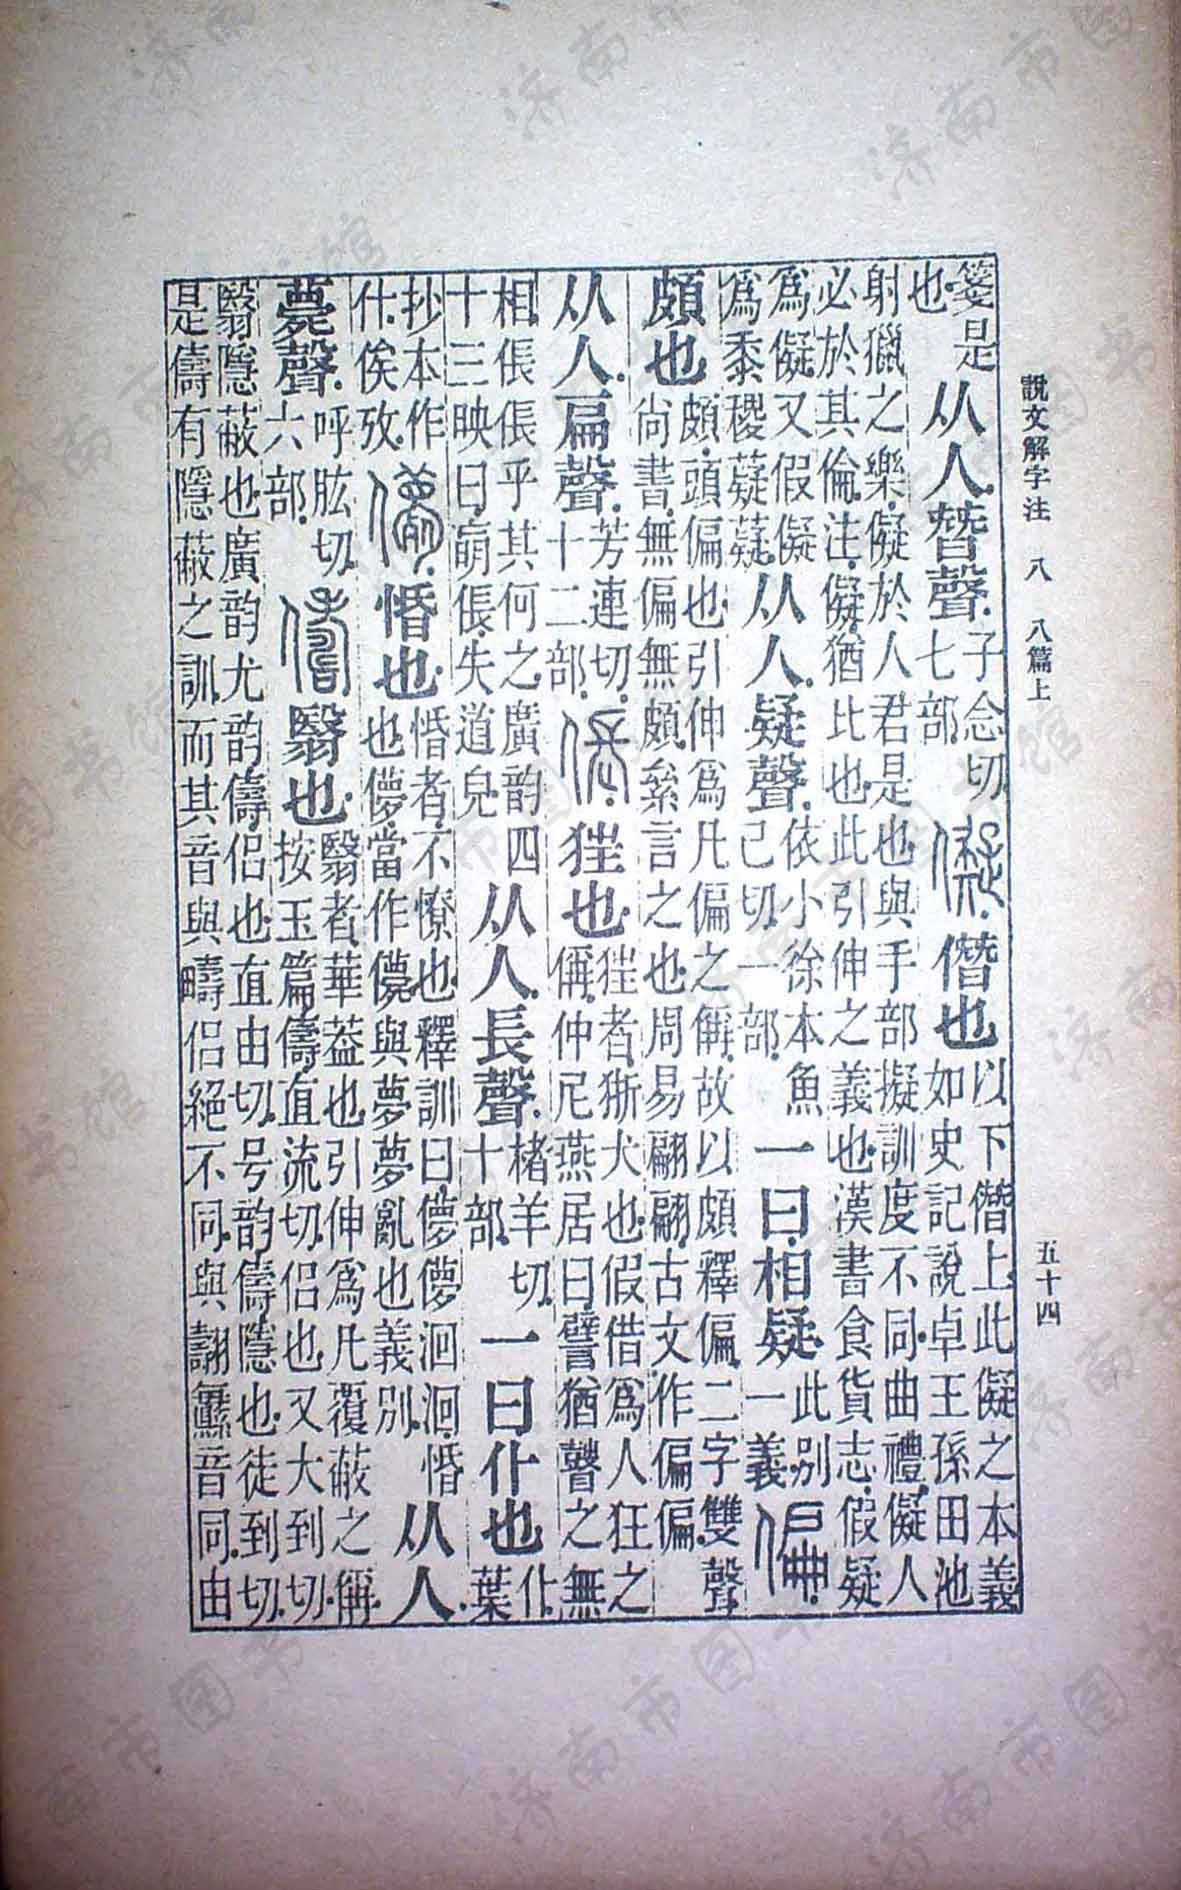 說文解字注 八 八篇上 五十四
箋是也从人朁聲子念切七部儗僭也以下僭上此儗之本義如史記說卓王孫田池
射獵之樂儗於人君是也與手部擬訓度不同曲禮儗人必於其倫注儗猶比也此引伸之義也漢書食貨志假疑
爲儗又假儗爲黍稷薿薿从人疑聲依小徐本魚己切一部一曰相疑此別一義偏
頗也頗頭偏也引伸爲凡偏之偁故以頗釋偏二字雙聲尚書無偏無頗絫言之也周易翩翩古文作偏偏
从人扁聲芳連切十二部倀㹵也㹵者狾犬也假借爲人狂之偁仲尼燕居曰譬猶瞽之無
相倀倀乎其何之廣韵四十三映曰倀失道皃从人長聲楮羊切十部一曰仆也仆葉
抄本作什俟攷㒟惛也惛者不憭也釋訓曰儚儚洄洄惛也儚當作㒟與夢夢亂也義別从人
薨聲呼肱切六部儔翳也翳者華葢也引伸爲凡覆蔽之偁按玉篇儔直流切侣也又大到切
翳隱蔽也廣韵尤韵儔侣也直由切号韵儔隱也徒到切是儔有隱蔽之訓而其音與疇侣絕不同與翿纛音同由
济南市图书馆